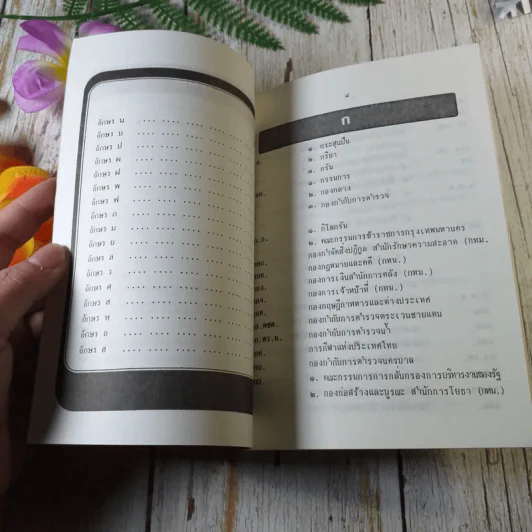 อักษร น .... .... .... .... ....
อักษร บ .... .... .... .... ....
อักษร ป .... .... .... .... ....
อักษร ผ .... .... .... .... ....
อักษร ฝ .... .... .... .... ....
อักษร พ .... .... .... .... ....
อักษร ฟ .... .... .... .... ....
อักษร ภ .... .... .... .... ....
อักษร ม .... .... .... .... ....
อักษร ย .... .... .... .... ....
อักษร ล .... .... .... .... ....
อักษร ว .... .... .... .... ....
อักษร ศ .... .... .... .... ....
อักษร ส .... .... .... .... ....
อักษร ห .... .... .... .... ....
อักษร อ .... .... .... .... ....
อักษร ฮ .... .... .... .... ....
ก
๑. กระสุนปืน
๒. กริยา
๓. กรัม
๑. กรรมการ
๒. กองกลาง
๓. กองกำกับการตำรวจ
๑. กิโลกรัม
๒. คณะกรรมการข้าราชการกรุงเทพมหานคร
กองกำจัดสิ่งปฏิกูล สำนักรักษาความสะอาด (กทม.
กองกฎหมายและคดี (กทม.)
กองการเงินสำนักการคลัง (กทม.)
กองการเจ้าหน้าที่ (กทม.)
กองกงสุลทหารและต่างประเทศ
กองกำกับการตำรวจตระเวนชายแดน
กองกำกับการตำรวจน้ำ
การกีฬาแห่งประเทศไทย
กองกำกับการตำรวจนครบาล
๑. คณะกรรมการการกลั่นกรองการบริหารงานของรัฐ
๒. กองก่อสร้างและบูรณะ สำนักการโยธา (กทม.)